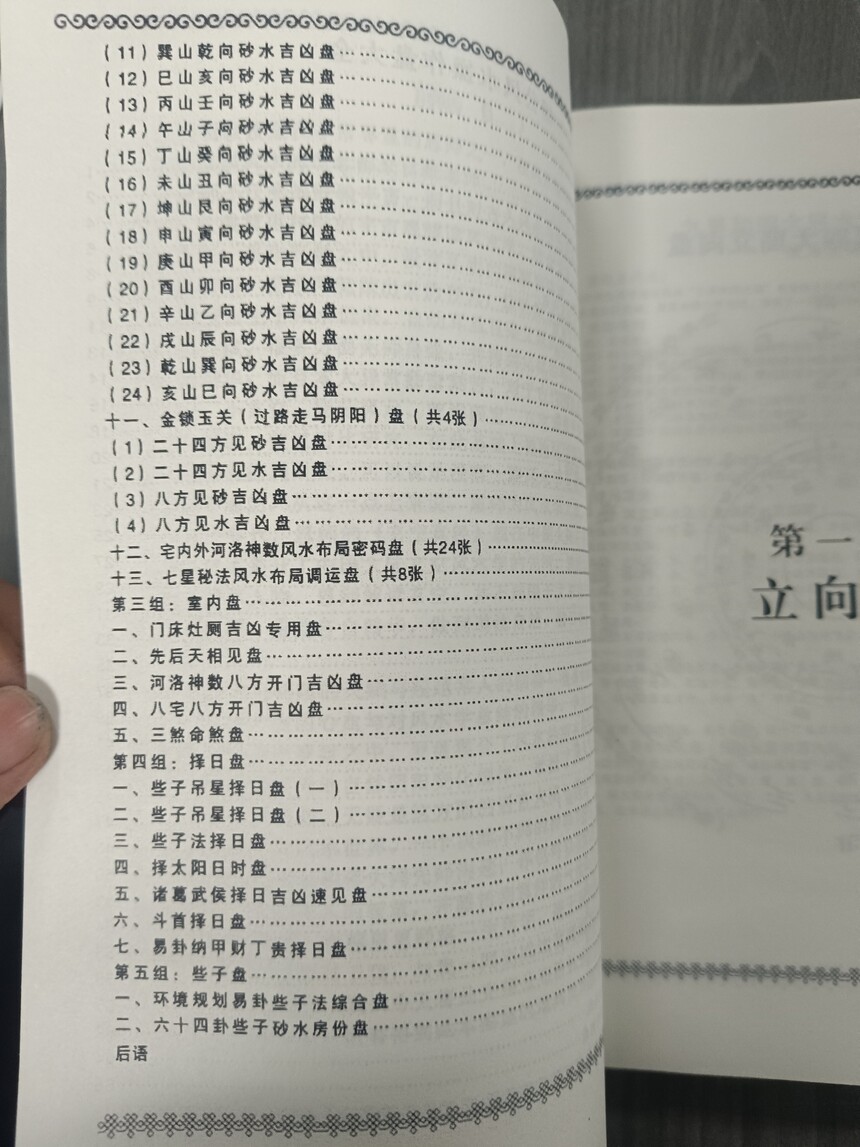 (11)巽山乾向砂水吉凶盘………………………
(12)巳山亥向砂水吉凶盘………………………
(13)丙山壬向砂水吉凶盘………………………
(14)午山子向砂水吉凶盘………………………
(15)丁山癸向砂水吉凶盘………………………
(16)未山丑向砂水吉凶盘………………………
(17)坤山艮向砂水吉凶盘………………………
(18)申山寅向砂水吉凶盘………………………
(19)庚山甲向砂水吉凶盘………………………
(20)酉山卯向砂水吉凶盘………………………
(21)辛山乙向砂水吉凶盘………………………
(22)戌山辰向砂水吉凶盘………………………
(23)乾山巽向砂水吉凶盘………………………
(24)亥山巳向砂水吉凶盘………………………
十一、金锁玉关(过路走马阴阳)盘(共4张)…………
(1)二十四方见砂吉凶盘………………………
(2)二十四方见水吉凶盘………………………
(3)八方见砂吉凶盘………………………
(4)八方见水吉凶盘………………………
十二、宅内外河洛神数风水布局密码盘(共24张)…………
十三、七星秘法风水布局调运盘(共8张)…………
第三组:室内盘………………………
一、门床灶厕吉凶专用盘………………………
二、先后天相见盘………………………
三、河洛神数八方开门吉凶盘………………………
四、八宅八方开门吉凶盘………………………
五、三煞命煞盘………………………
第四组:择日盘………………………
一、些子吊星择日盘(一)………………………
二、些子吊星择日盘(二)………………………
三、些子法择日盘………………………
四、择太阳日时盘………………………
五、诸葛武侯择日吉凶速见盘………………………
六、斗首择日盘………………………
七、易卦纳甲财丁贵择日盘………………………
第五组:些子盘………………………
一、环境规划易卦些子法综合盘………………………
二、六十四卦些子砂水房份盘………………………
后语
第一
立向